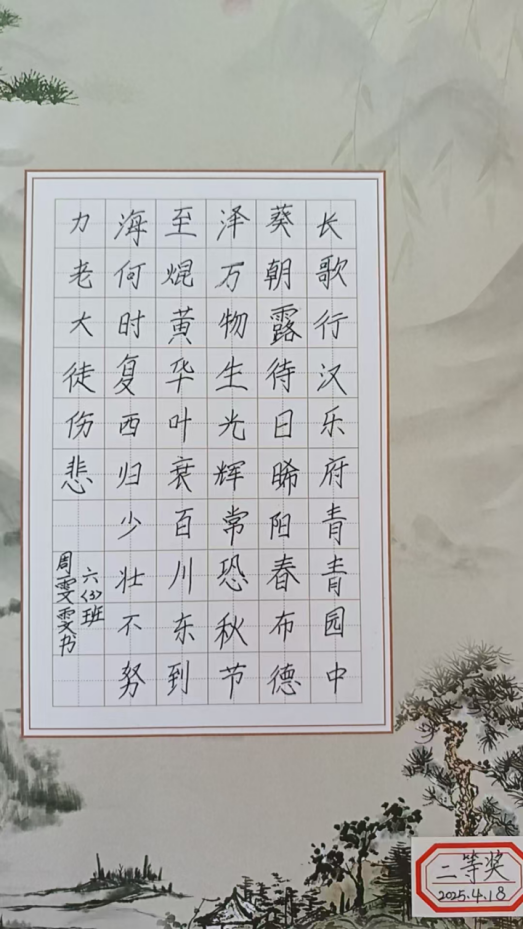 长歌行汉乐府青青园中
葵朝露待日晞阳春布德
泽万物生光辉常恐秋节
至焜黄华叶衰百川东到
海何时复西归少壮不努
力老大徒伤悲
六(3)班
周雯雯书
二等奖
2025.4.18